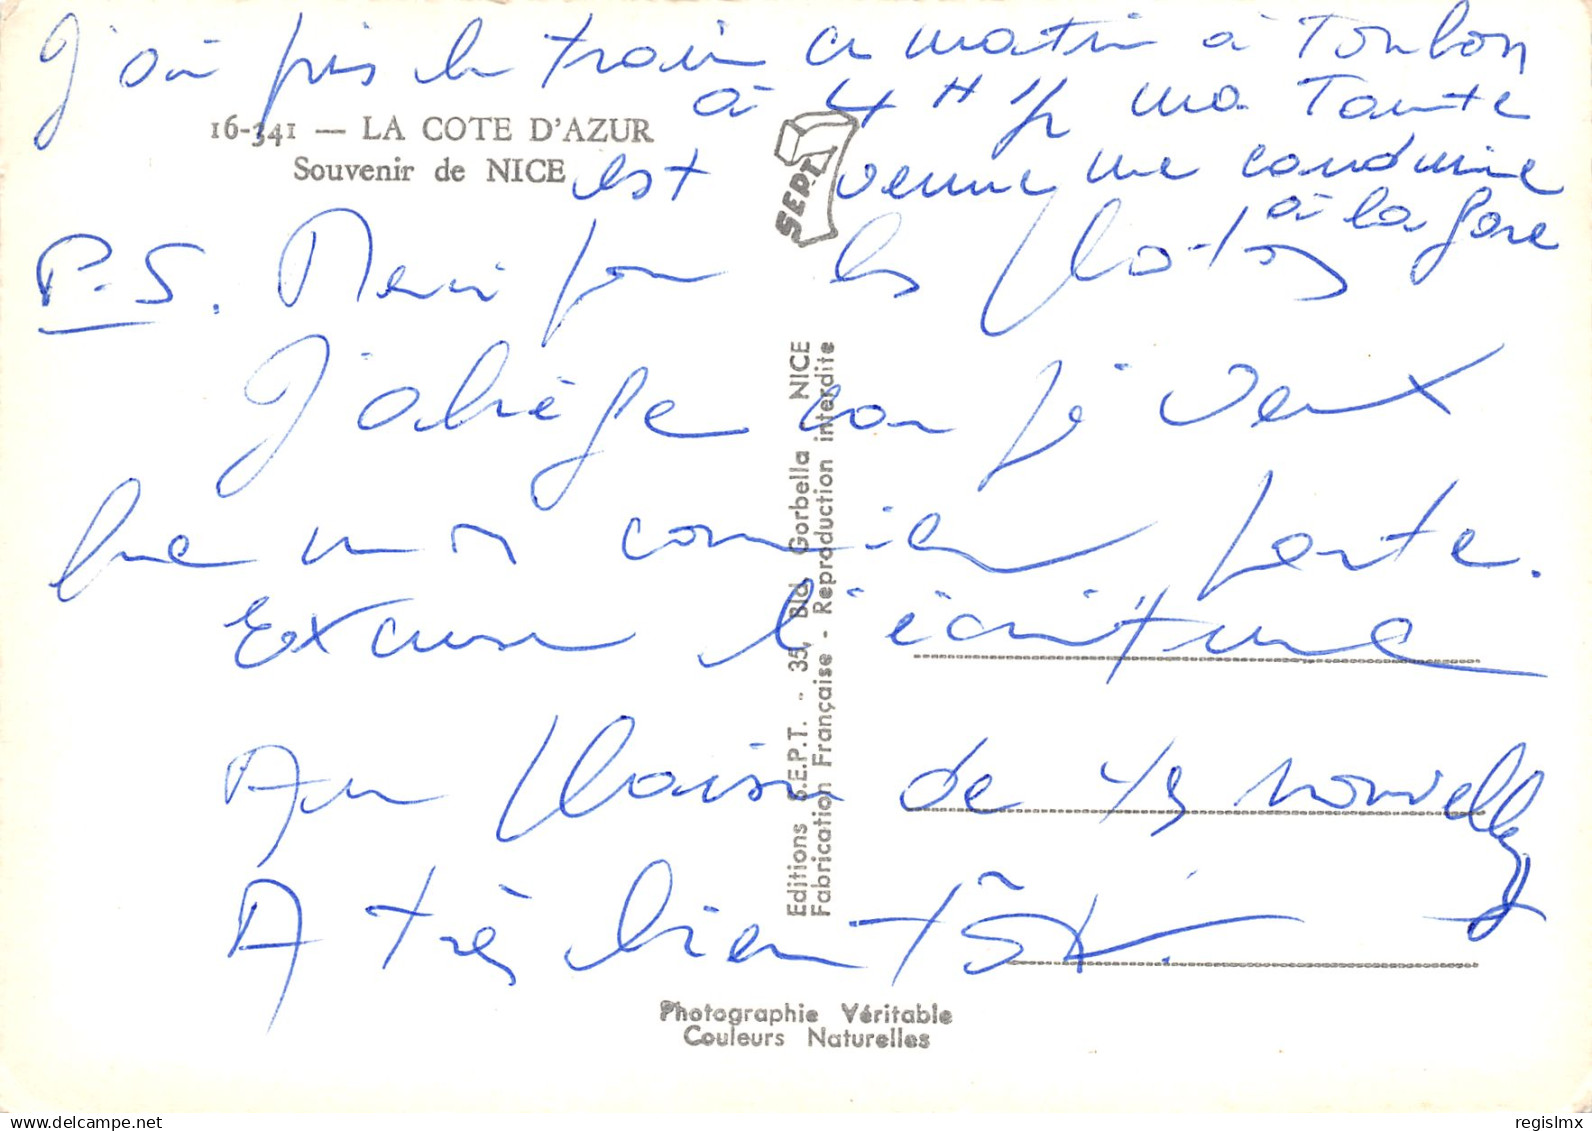 J'ai pris le train ce matin à Toulon
à 4 H 1/2 ma Tante
16-341 — LA COTE D'AZUR
Souvenir de NICE
est venue me conduire
à la gare
SEPT
P.S. Merci pour les photos
J'abrège car je veux
que mon courrier parte.
Excuse l'écriture
Au plaisir de tes nouvelles
A très bientôt.
Editions S.E.P.T. - 35, Bld Gorbella NICE
Fabrication Française - Reproduction interdite
Photographie Véritable
Couleurs Naturelles
regislmx